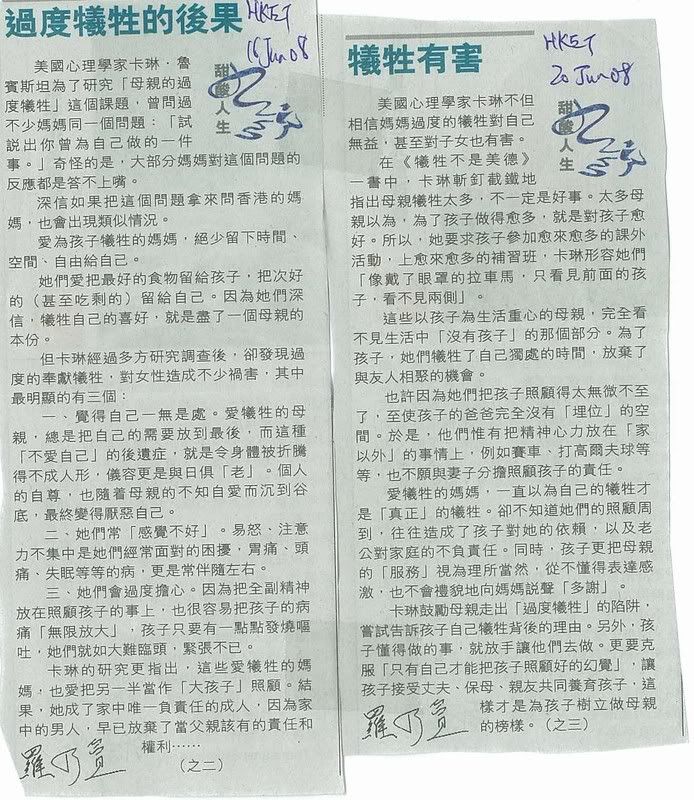 過度犧牲的後果
HKET
16 Jun 08
甜酸人生
美國心理學家卡琳．魯
賓斯坦為了研究「母親的過
度犧牲」這個課題，曾問過
不少媽媽同一個問題：「試
說出你曾為自己做的一件
事。」奇怪的是，大部分媽媽對這個問題的
反應都是答不上嘴。
深信如果把這個問題拿來問香港的媽
媽，也會出現類似情況。
愛為孩子犧牲的媽媽，絕少留下時間、
空間、自由給自己。
她們愛把最好的食物留給孩子，把次好
的（甚至吃剩的）留給自己。因為她們深
信，犧牲自己的喜好，就是盡了一個母親的
本份。
但卡琳經過多方研究調查後，卻發現過
度的奉獻犧牲，對女性造成不少禍害，其中
最明顯的有三個：
一、覺得自己一無是處。愛犧牲的母
親，總是把自己的需要放到最後，而這種
「不愛自己」的後遺症，就是令身體被折騰
得不成人形，儀容更是與日俱「老」。個人
的自尊，也隨着母親的不知自愛而沉到谷
底，最終變得厭惡自己。
二、她們常「感覺不好」。易怒、注意
力不集中是她們經常面對的困擾，胃痛、頭
痛、失眠等等的病，更是常伴隨左右。
三、她們會過度擔心。因為把全副精神
放在照顧孩子的事上，也很容易把孩子的病
痛「無限放大」，孩子只要有一點點發燒嘔
吐，她們就如大難臨頭，緊張不已。
卡琳的研究更指出，這些愛犧牲的媽
媽，也愛把另一半當作「大孩子」照顧。結
果，她成了家中唯一負責任的成人，因為家
中的男人，早已放棄了當父親該有的責任和
權利……
羅乃萱
（之二）
犧牲有害
HKET
20 Jun 08
甜酸人生
美國心理學家卡琳不但
相信媽媽過度的犧牲對自己
無益，甚至對子女也有害。
在《犧牲不是美德》
一書中，卡琳斬釘截鐵地
指出母親犧牲太多，不一定是好事。太多母
親以為，為了孩子做得愈多，就是對孩子愈
好。所以，她要求孩子參加愈來愈多的課外
活動，上愈來愈多的補習班，卡琳形容她們
「像戴了眼罩的拉車馬，只看見前面的孩
子，看不見兩側」。
這些以孩子為生活重心的母親，完全看
不見生活中「沒有孩子」的那個部分。為了
孩子，她們犧牲了自己獨處的時間，放棄了
與友人相聚的機會。
也許因為她們把孩子照顧得太無微不至
了，至使孩子的爸爸完全沒有「埋位」的空
間。於是，他們惟有把精神心力放在「家
以外」的事情上，例如賽車、打高爾夫球等
等，也不願與妻子分擔照顧孩子的責任。
愛犧牲的媽媽，一直以為自己的犧牲才
是「真正」的犧牲。卻不知道她們的照顧周
到，往往造成了孩子對她的依賴，以及老
公對家庭的不負責任。同時，孩子更把母親
的「服務」視為理所當然，從不懂得表達感
激，也不會禮貌地向媽媽說聲「多謝」。
卡琳鼓勵母親走出「過度犧牲」的陷阱，
嘗試告訴孩子自己犧牲背後的理由。另外，孩
子懂得做的事，就放手讓他們去做。更要克
服「只有自己才能把孩子照顧好的幻覺」，讓
孩子接受丈夫、保母、親友共同養育孩子，這
樣才是為孩子樹立做母親
的榜樣。（之三）
羅乃萱